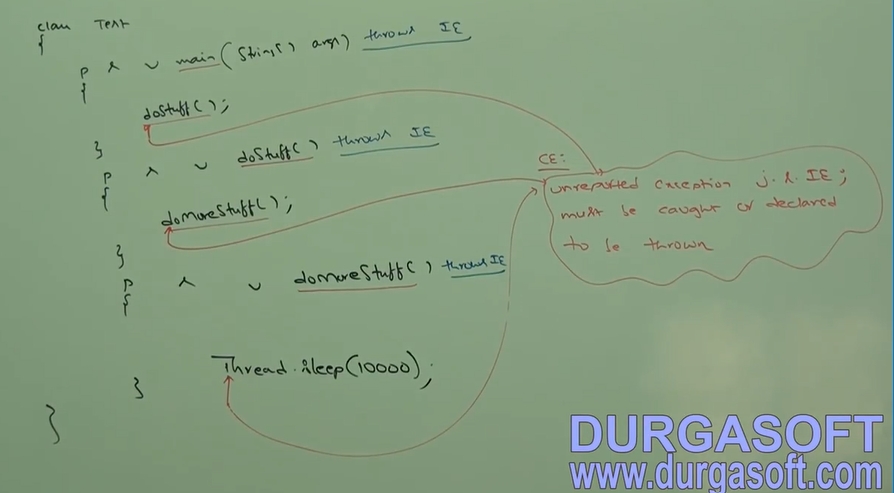 class Test
{
p s v main(String[] args) throws IE
{
doStuff();
}
p s v doStuff() throws IE
{
doMoreStuff();
}
p s v doMoreStuff() throws IE
{
Thread.sleep(10000);
}
}
CE:
unreported exception j.l.IE;
must be caught or declared
to be thrown
DURGASOFT
www.durgasoft.com